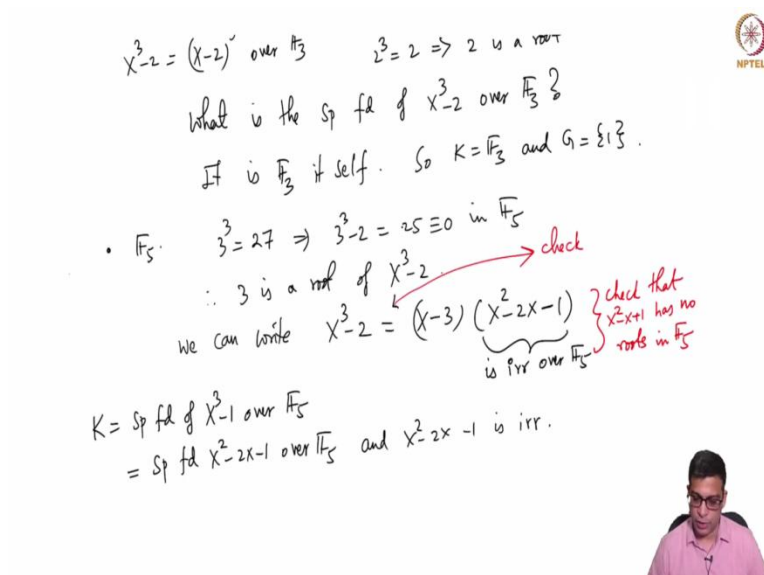 x³-2 = (x-2)³ over 𝔽₃ 2³=2 => 2 is a root
What is the sp fd of x³-2 over 𝔽₃?
It is 𝔽₃ it self. So K=𝔽₃ and G={1}.
• 𝔽₅. 3³=27 => 3³-2 = 25 ≡0 in 𝔽₅
∴ 3 is a root of x³-2.
check
we can write x³-2 = (x-3) (x²-2x-1)
is irr over 𝔽₅
check that
x²-x+1 has no
roots in 𝔽₅
K = sp fd of x³-1 over 𝔽₅
= sp fd x²-2x-1 over 𝔽₅ and x²-2x-1 is irr.
NPTEL